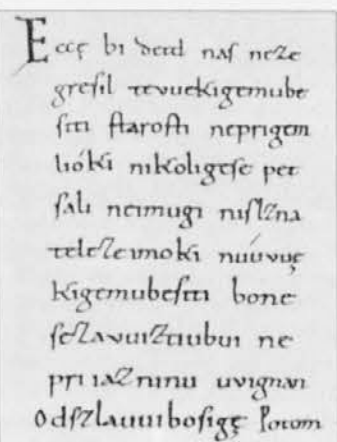 Eccę bi detd naſ neze
greſil tevuekigemube
ſiti ſtaroſti neprigem
lióki nikoligeſe pet
ſali neimugi niſlzna
telezeimoki nuúvuę
kigemubeſiti bone
ſezavuiztiubui ne
pri iazninu uvignan
Odſzlauuiboſigę Potom